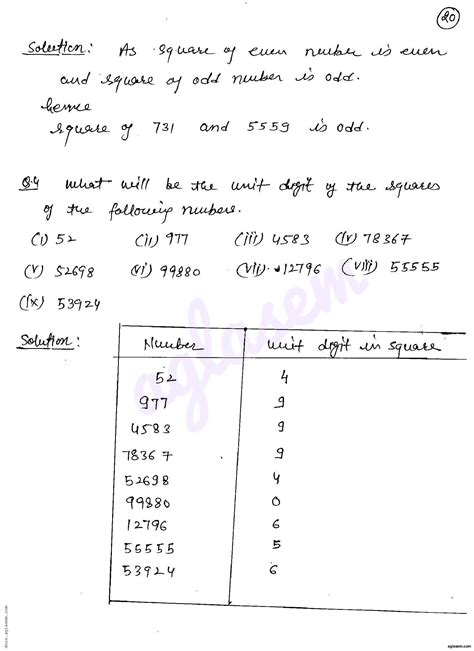 20
Solution: As square of even number is even
and square of odd number is odd.
hence
square of 731 and 5559 is odd.
Q.4 What will be the unit digit of the squares
of the following numbers.
(i) 52 (ii) 977 (iii) 4583 (iv) 78367
(v) 52698 (vi) 99880 (vii) 12796 (viii) 55555
(ix) 53924
Solution:
Number unit digit in square
52 4
977 9
4583 9
78367 9
52698 4
99880 0
12796 6
55555 5
53924 6
aglasem
docs.aglasem.com
aglasem.com